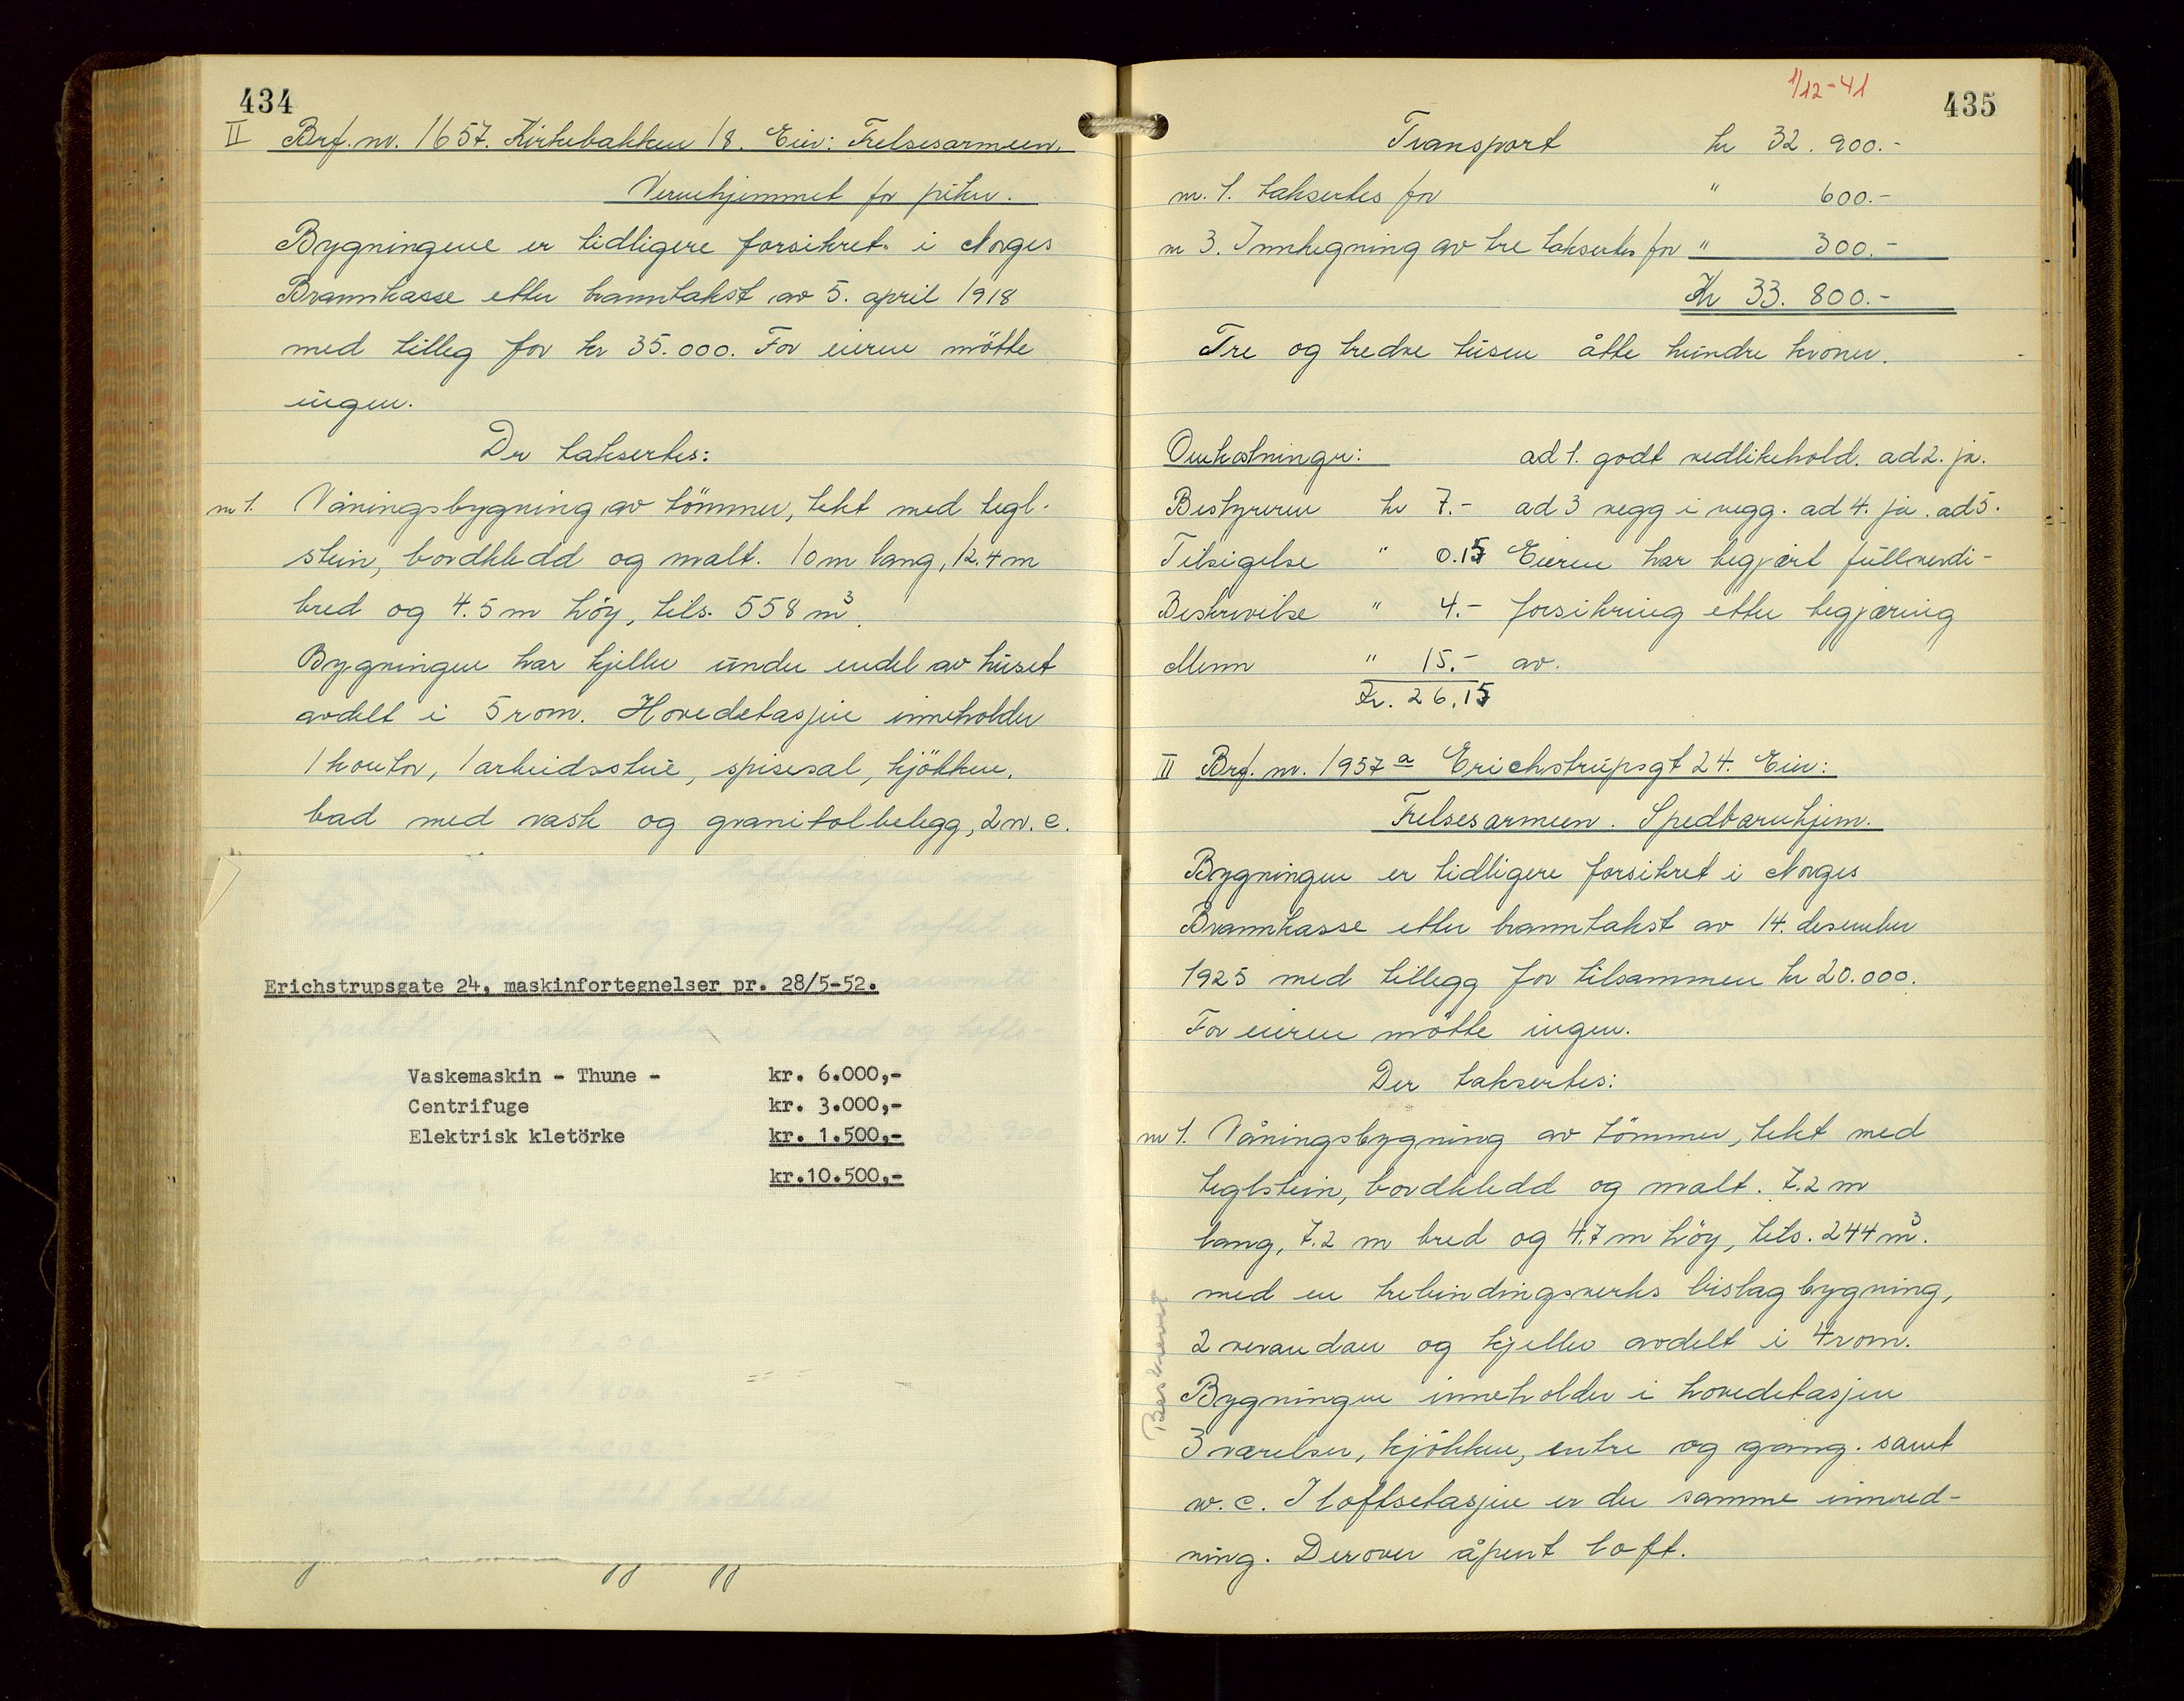 434
II Brf. nr. 1657. Kirkebakken 18. Eier: Frelsesarmeen.
Vernehjemmet for piker.
Bygningene er tidligere forsikret i Norges
Brannkasse etter branntakst av 5. april 1918
med tilleg for kr 35.000. For eieren mötte
ingen.
Der taksertes:
nr 1. Våningsbygning av tömmer, tekt med tegl-
stein, bordkledd og malt. 10 m lang, 12.4 m
bred og 4.5 m höy, tils. 558 m³.
Bygningen har kjeller under endel av huset
avdelt i 5 rom. Hovedetasjen inneholder
1 kontor, 1 arbeidsstue, spisesal, kjökken,
bad med vask og granitolbelegg, 2 w.c.
Erichstrupsgate 24, maskinfortegnelser pr. 28/5-52.
Vaskemaskin - Thune - kr. 6.000,-
Centrifuge kr. 3.000,-
Elektrisk kletörke kr. 1.500,-
kr.10.500,-
1/12-41
435
Transport kr 32.900.-
nr. 1. taksertes for " 600.-
nr 3. Innhegning av tre taksertes for " 300.-
Kr 33.800.-
Tre og tredve tusen åtte hundre kroner.
Omkostninger: ad 1. godt vedlikehold. ad 2. ja.
Bestyreren kr 7.- ad 3 vegg i vegg. ad 4. ja. ad 5.
Tilsigelse " 0.15 Eieren har begjært fullverdi-
Beskrivelse " 4.- forsikring etter begjæring
Menn " 15.- av.
Kr. 26.15
II Brf. nr. 1957 a Erichstrupsgt 24. Eier:
Frelsesarmeen. Spedbarnhjem.
Bygningen er tidligere forsikret i Norges
Brannkasse etter branntakst av 14. desember
1925 med tillegg for tilsammen kr 20.000.
For eieren mötte ingen.
Der taksertes:
nr 1. Våningsbygning av tömmer, tekt med
teglstein, bordkledd og malt. 7.2 m
lang, 7.2 m bred og 4.7 m höy, tils. 244 m³.
med en trebindingsverks bislagbygning,
2 verandaer og kjeller avdelt i 4 rom.
Bygningen inneholder i hovedetasjen
3 værelser, kjökken, entre og gang. samt
w.c. I loftsetasjen er der samme innred-
ning. Derover åpent loft.
Beskrevet